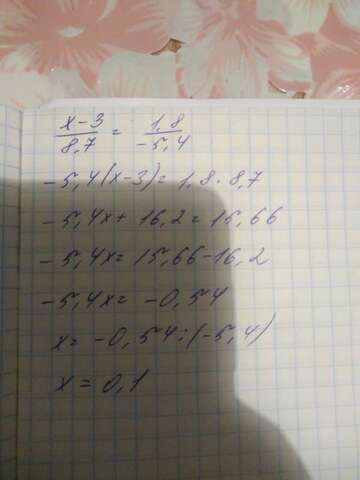 x-3/8,7 = 1,8/-5,4
-5,4(x-3)=1,8·8,7
-5,4x+16,2=15,66
-5,4x=15,66-16,2
-5,4x=-0,54
x=-0,54:(-5,4)
x=0,1